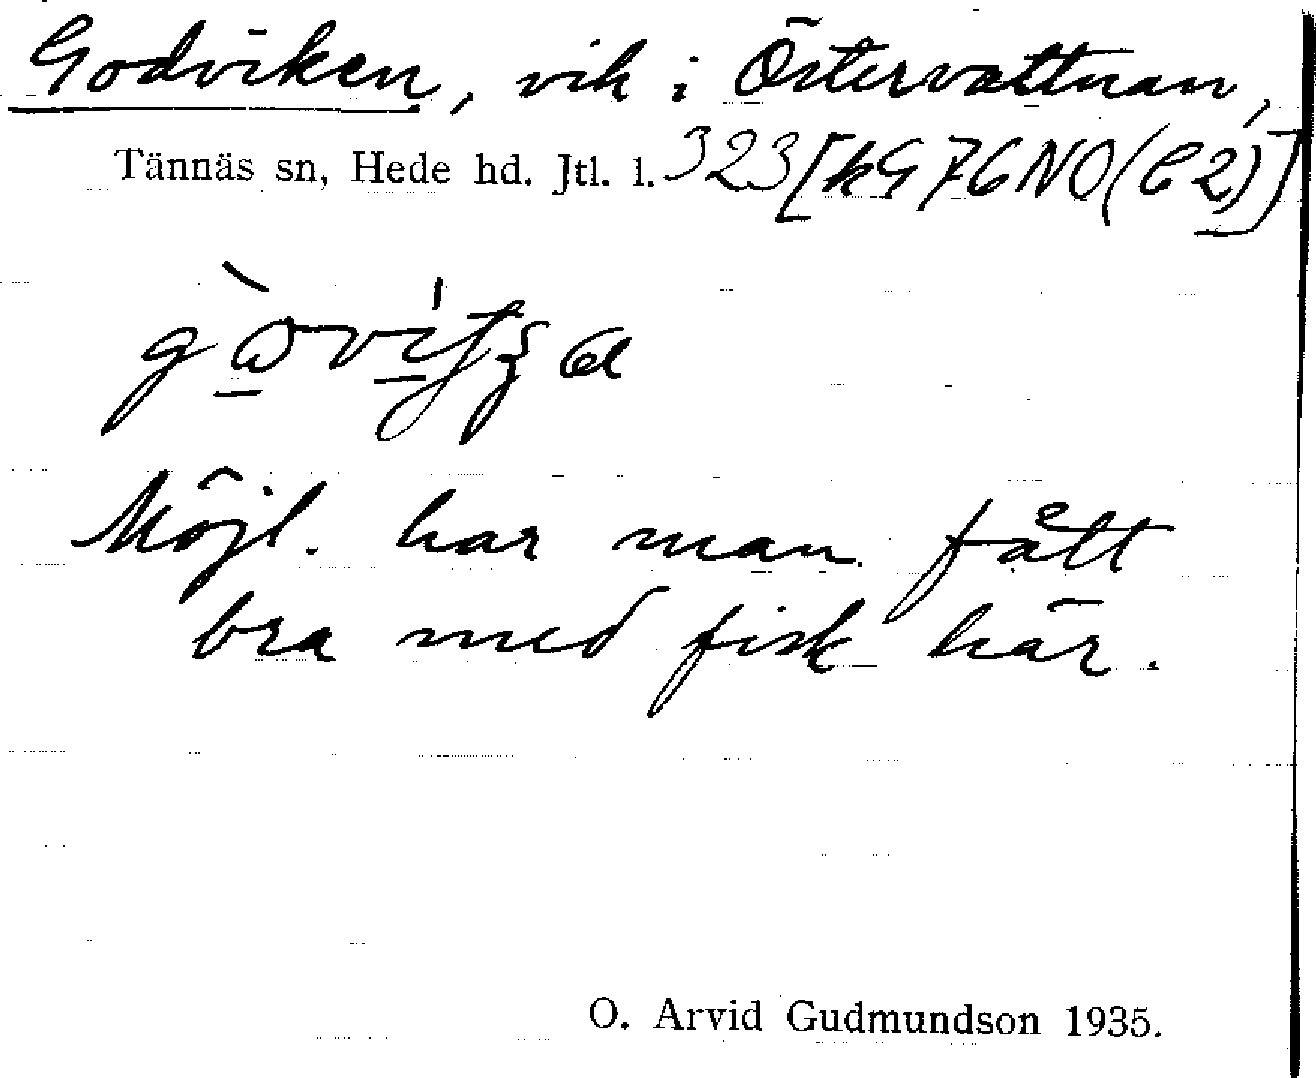 Godviken, vik i Östervattnan,
Tännäs sn, Hede hd. Jtl. l. 323 [kG 76 NO (C2)]
Möjl. har man fått
bra med fisk här.
O. Arvid Gudmundson 1935.